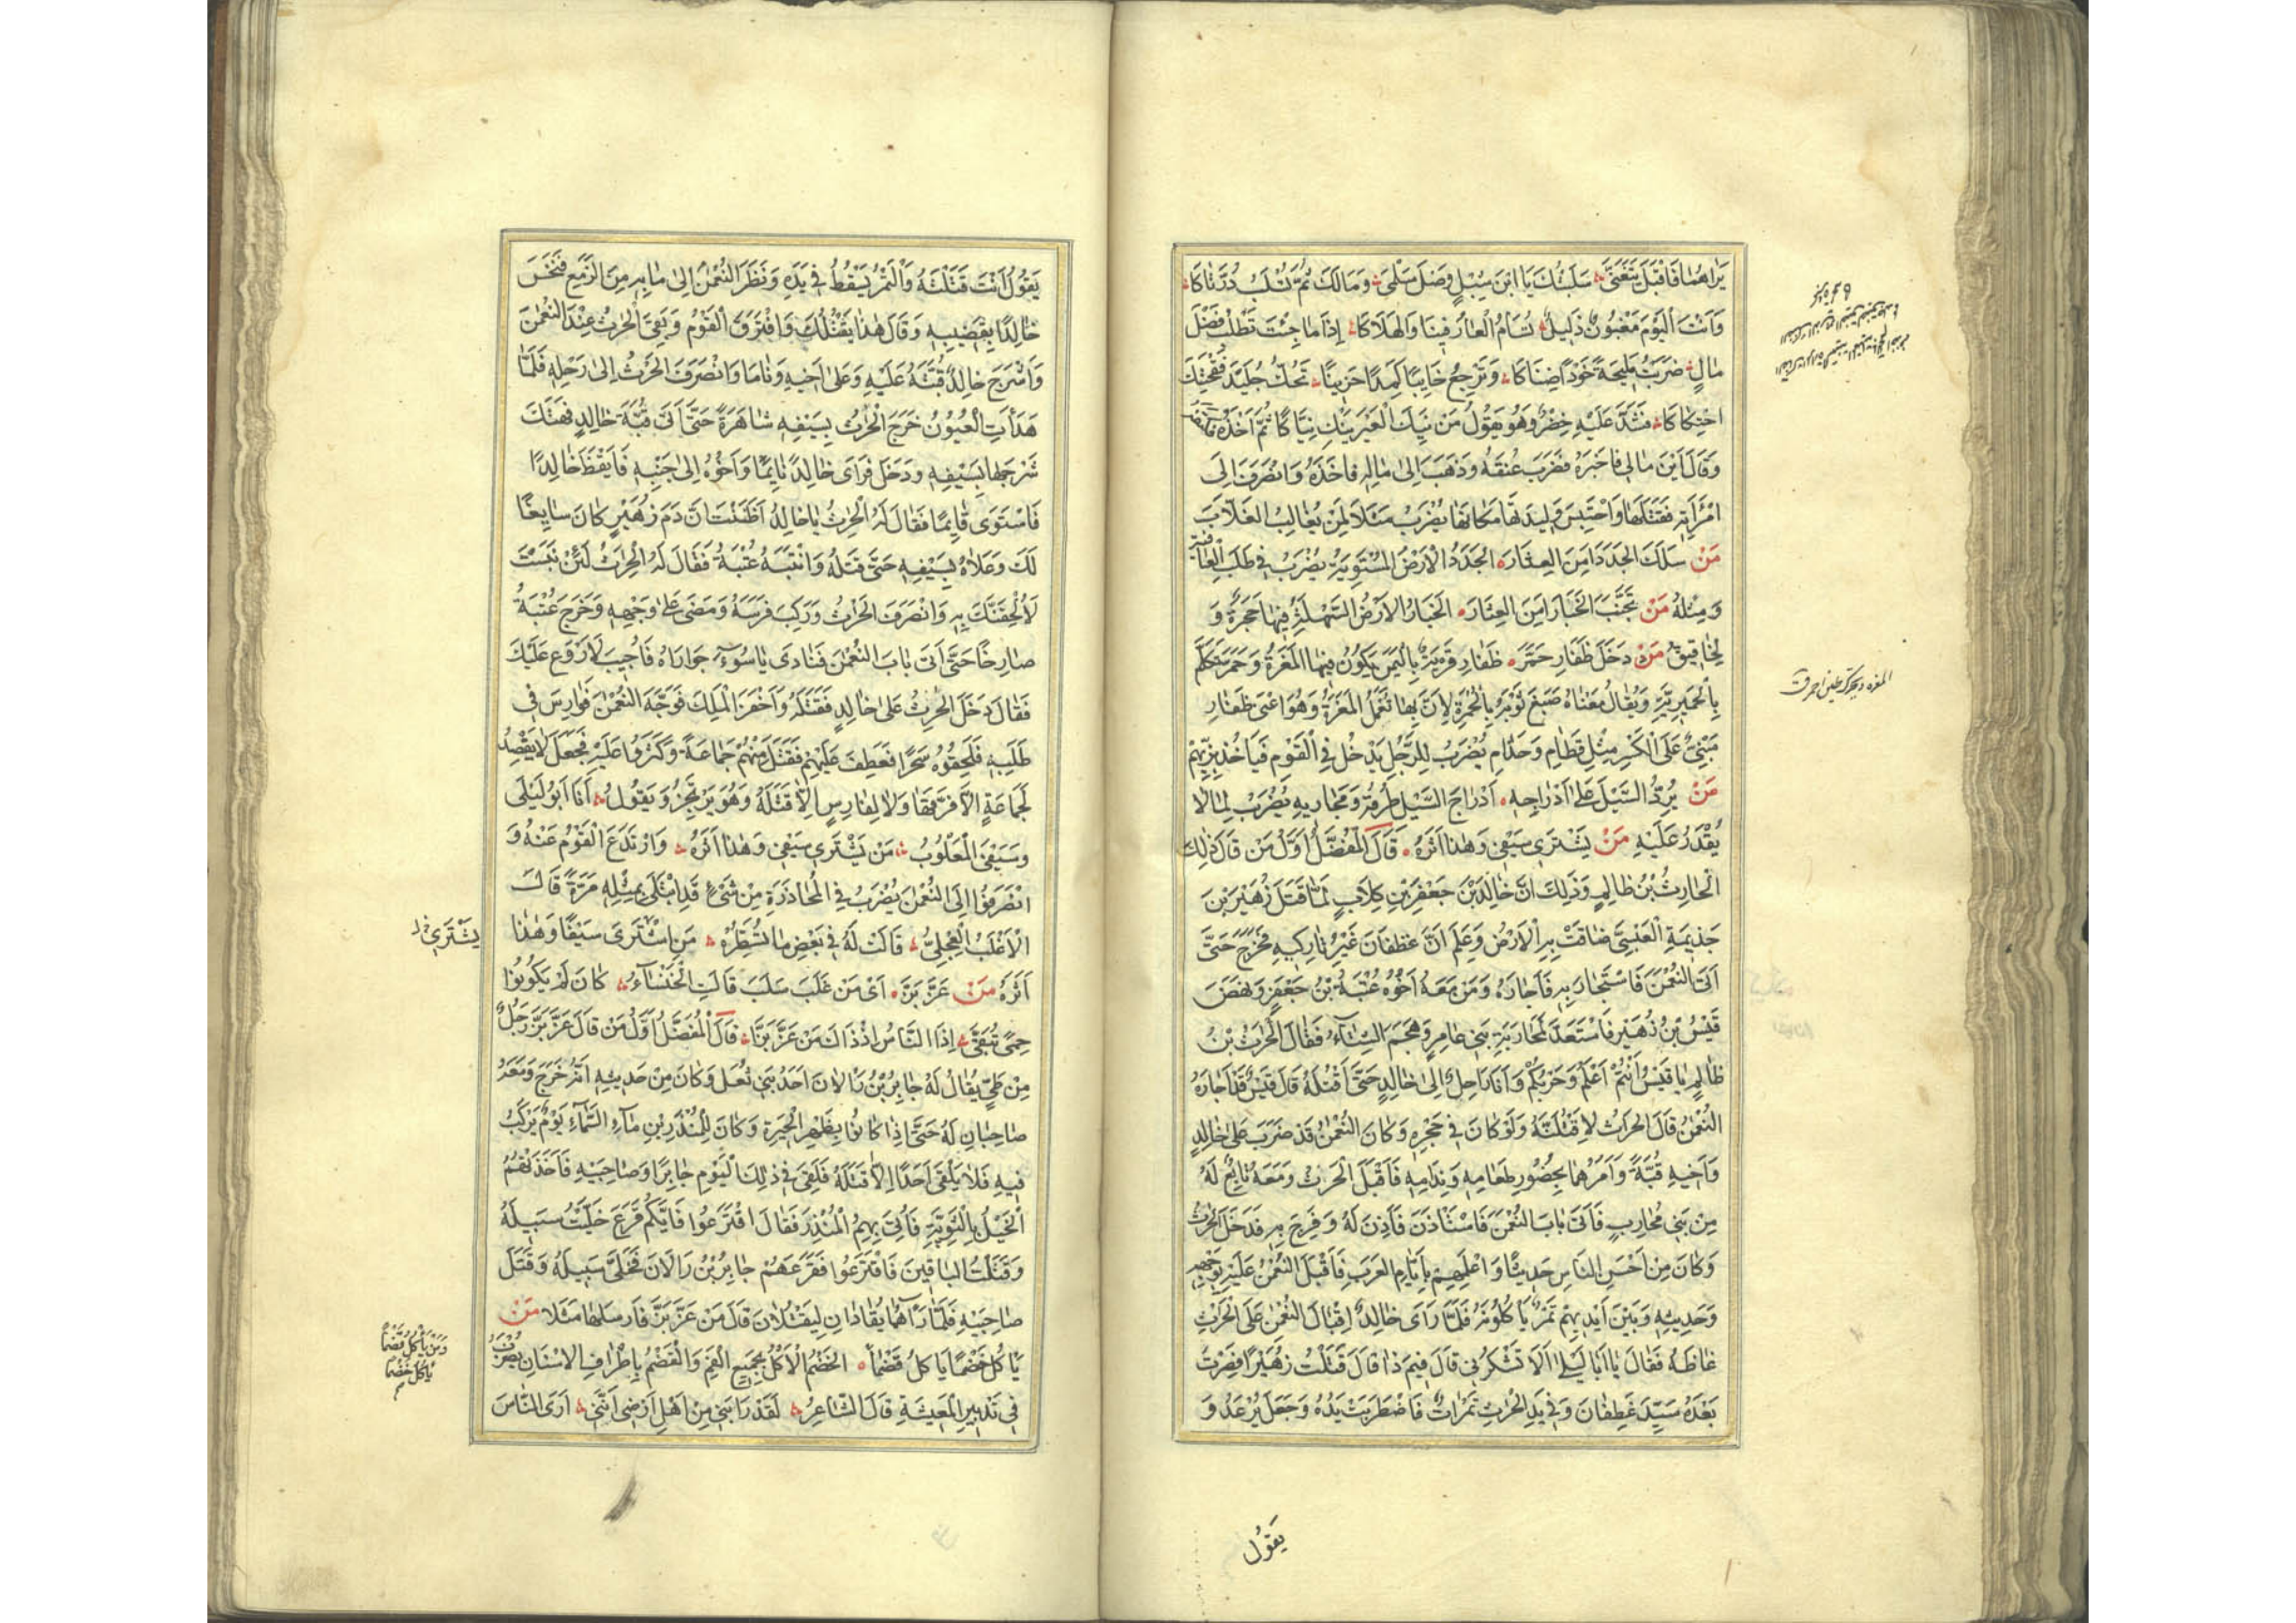 يَرَاهُمَا فَاَقْبَلَ يَتَغَنَّى سَلَبْتُكَ يَا ابْنَ سِبْلٍ وَصْلَ سَلْمَى وَمَا لَكَ ثُمَّ تُسْلَبُ دُرَّتَاكَا
وَاَنْتَ الْيَوْمَ مَغْبُونٌ ذَلِيلٌ تُسَامُ الْعَارَ فِينَا وَالهَلَاكَا اِذَا مَا جِئْتَ تَطْلُبُ فَضْلَ
مَالٍ ضَرَبْتَ مَلِيحَةً خَوْدًا ضِنَاكَا وَتَرْجِعُ خَايِبًا كَمِدًا حَزِينًا تَحُكُّ جُلَيْدَ فَقْحَتِكَ
احْتِكَاكَا فَشَدَّ عَلَيْهِ خِضْرٌ وَهُوَ يَقُولُ مَنْ يَنِكِ الْعَيْرَ يَنِكْ نَيَّاكًا ثُمَّ اَخَذَهُ
وَقَالَ اَيْنَ مَالِي فَاَخْبَرَهُ فَضَرَبَ عُنُقَهُ وَذَهَبَ اِلَى مَالِهِ فَاَخَذَهُ وَانْصَرَفَ اِلَى
امْرَأَتِهِ فَقَتَلَهَا وَاحْتَبَسَ وَلِيدَتَهَا مَكَانَهَا يُضْرَبُ مَثَلًا لِمَنْ يُغَالِبُ الْغَلَّابَ
مَنْ سَلَكَ الجَدَدَ اَمِنَ العِثَارَ الجَدَدُ الْاَرْضُ المُسْتَوِيَةُ يُضْرَبُ فِي طَلَبِ الْعَافِيَةِ
وَمِثْلُهُ مَنْ تَجَنَّبَ الخَبَارَ اَمِنَ العِثَارَ الخَبَارُ الارْضُ السَّهْلَةُ فِيهَا حِجَرَةٌ وَ
لَخَاقِيقُ مَنْ دَخَلَ ظَفَارِ حَمَّرَ ظَفَارِ قَرْيَةٌ بِالْيَمَنِ يَكُونُ فِيهَا المَغْرَةُ وَحَمَّرَ تَكَلَّمَ
بِالْحِمْيَرِيَّةِ وَيُقَالُ مَعْنَاهُ صَبَغَ ثَوْبَهُ بِالْحُمْرَةِ لِاَنَّ بِهَا تُعْمَلُ المَغْرَةُ وَهُوَ اعْنِى ظَفَارِ
مَبْنِىٌّ عَلَى الْكَسْرِ مِثْلِ قَطَامِ وَحَذَامِ يُضْرَبُ لِلرَّجُلِ يَدْخُلُ فِي الْقَوْمِ فَيَأْخُذُ بِزِيِّهِمْ
مَنْ يَرُدُّ السَّيْلَ عَلَى اَدْرَاجِهِ اَدْرَاجُ السَّيْلِ طُرُقُهُ وَمَجَارِيهِ يُضْرَبُ لِمَا لَا
يُقْدَرُ عَلَيْهِ مَنْ يَشْتَرِي سَيْفِي وَهٰذَا اَثَرُهُ قَالَ المُفَضَّلُ اَوَّلُ مَنْ قَالَ ذٰلِكَ
الْحَارِثُ بْنُ ظَالِمٍ وَذٰلِكَ اَنَّ خَالِدَ بْنَ جَعْفَرِ بْنِ كِلَابٍ لَمَّا قَتَلَ زُهَيْرَ بْنَ
جَذِيمَةَ الْعَبْسِيَّ ضَاقَتْ بِهِ الْاَرْضُ وَعَلِمَ اَنَّ غَطَفَانَ غَيْرُ تَارِكِيهِ فَخَرَجَ حَتَّى
اَتَى النُّعْمٰنَ فَاسْتَجَارَ بِهِ فَاَجَارَهُ وَمَنْ مَعَهُ اَخُوهُ عُتْبَةُ بْنُ جَعْفَرٍ وَنَهَضَ
قَيْسُ بْنُ زُهَيْرٍ فَاسْتَعَدَّ لِمُحَارَبَةِ بَنِي عَامِرٍ وَهَجَمَ الشِّتَاءُ فَقَالَ الْحَرِثُ بْنُ
ظَالِمٍ يَا قَيْسُ اَنْتُمْ اَعْلَمُ وَحَرْبُكُمْ وَاَنَا رَاحِلٌ اِلَى خَالِدٍ حَتَّى اَقْتُلَهُ قَالَ قَيْسٌ قَدْ اَجَارَهُ
النُّعْمٰنُ قَالَ الحَرِثُ لَاَقْتُلَنَّهُ وَلَوْ كَانَ فِي حَجْرِهِ وَكَانَ النُّعْمٰنُ قَدْ ضَرَبَ عَلَى خَالِدٍ
وَاَخِيهِ قُبَّةً وَاَمَرَهُمَا بِحُضُورِ طَعَامِهِ وَنِدَامِهِ فَاَقْبَلَ الْحَرِثُ وَمَعَهُ تَابِعٌ لَهُ
مِنْ بَنِي مُحَارِبٍ فَاَتَى بَابَ النُّعْمٰنِ فَاسْتَأْذَنَ فَاَذِنَ لَهُ وَفَرِحَ بِهِ فَدَخَلَ الْحَرِثُ
وَكَانَ مِنْ اَحْسَنِ النَّاسِ حَدِيثًا وَاَعْلَمِهِمْ بِاَيَّامِ العَرَبِ فَاَقْبَلَ النُّعْمٰنُ عَلَيْهِ بِوَجْهِهِ
وَحَدِيثِهِ وَبَيْنَ اَيْدِيهِمْ تَمْرٌ يَأْكُلُونَهُ فَلَمَّا رَاَى خَالِدٌ اِقْبَالَ النُّعْمٰنِ عَلَى الْحَرِثِ
غَاظَهُ فَقَالَ يَا اَبَا لَيْلَى اَلَا تَشْكُرُنِي قَالَ فِيمَ ذَا قَالَ قَتَلْتُ زُهَيْرًا فَصِرْتَ
بَعْدَهُ سَيِّدَ غَطَفَانَ وَفِي يَدِ الْحَرِثِ تَمَرَاتٌ فَاضْطَرَبَتْ يَدُهُ وَجَعَلَ يُرْعَدُ وَ
يَقُولُ
يَقُولُ اَنْتَ قَتَلْتَهُ وَالْتَّمْرُ يَسْقُطُ فِي يَدِهِ وَنَظَرَ النُّعْمٰنُ اِلَى مَا بِهِ مِنَ الزَّمَعِ فَنَخَسَ
خَالِدًا بِقَضِيبِهِ وَقَالَ هٰذَا يَقْتُلُكَ وَافْتَرَقَ الْقَوْمُ وَبَقِيَ الْحَرِثُ عِنْدَ النُّعْمٰنِ
وَاَشْرَجَ خَالِدٌ قُبَّتَهُ عَلَيْهِ وَعَلَى اَخِيهِ وَنَامَا وَانْصَرَفَ الحَرِثُ اِلَى رَحْلِهِ فَلَمَّا
هَدَأَتِ الْعُيُونُ خَرَجَ الْحَرِثُ بِسَيْفِهِ شَاهِرَهُ حَتَّى اَتَى قُبَّةَ خَالِدٍ فَهَتَكَ
شَرْجَهَا بِسَيْفِهِ وَدَخَلَ فَرَاَى خَالِدًا نَايِمًا وَاَخُوهُ اِلَى جَنْبِهِ فَاَيْقَظَ خَالِدًا
فَاسْتَوَى قَايِمًا فَقَالَ لَهُ الْحَرِثُ يَا خَالِدُ اَظَنَنْتَ اَنَّ دَمَ زُهَيْرٍ كَانَ سَايِغًا
لَكَ وَعَلَاهُ بِسَيْفِهِ حَتَّى قَتَلَهُ وَانْتَبَهَ عُتْبَةُ فَقَالَ لَهُ الْحَرِثُ لَئِنْ نَبَسْتَ
لَاُلْحِقَنَّكَ بِهِ وَانْصَرَفَ الحَرِثُ وَرَكِبَ فَرَسَهُ وَمَضَى عَلَى وَجْهِهِ وَخَرَجَ عُتْبَةُ
صَارِخًا حَتَّى اَتَى بَابَ النُّعْمٰنِ فَنَادَى يَا سُوءَ جِوَارَاهُ فَاُجِيبَ لَا رَوْعَ عَلَيْكَ
فَقَالَ دَخَلَ الْحَرِثُ عَلَى خَالِدٍ فَقَتَلَهُ وَاَخْفَرَ الْمَلِكَ فَوَجَّهَ النُّعْمٰنُ فَوَارِسَ فِي
طَلَبِهِ فَلَحِقُوهُ سَحَرًا فَعَطَفَ عَلَيْهِمْ فَقَتَلَ مِنْهُمْ جَمَاعَةً وَكَثَرُوا عَلَيْهِ فَجَعَلَ لَا يَقْصِدُ
لِجَمَاعَةٍ اِلَّا فَرَّقَهَا وَلَا لِفَارِسٍ اِلَّا قَتَلَهُ وَهُوَ يَرْتَجِزُ وَيَقُولُ اَنَا اَبُو لَيْلَى
وَسَيْفِي المَعْلُوبُ مَنْ يَشْتَرِي سَيْفِي وَهٰذَا اَثَرُهُ وَارْتَدَعَ الْقَوْمُ عَنْهُ وَ
انْصَرَفُوا اِلَى النُّعْمٰنِ يُضْرَبُ فِي الْمُحَاذَرَةِ مِنْ شَيْءٍ قَدِ ابْتُلِيَ بِمِثْلِهِ مَرَّةً قَالَ
الْاَغْلَبُ الْعِجْلِيُّ قَالَتْ لَهُ فِي بَعْضِ مَا تُسَطِّرُهُ مَنِ اشْتَرَى سَيْفًا وَهٰذَا
يَشْتَرِي
اَثَرُهُ مَنْ عَزَّ بَزَّ اَىْ مَنْ غَلَبَ سَلَبَ قَالَتِ الْخَنْسَاءُ كَانَ لَمْ يَكُونُوا
حِمًى يُتَّقَى اِذَا النَّاسُ اِذْ ذَاكَ مَنْ عَزَّ بَزَّا قَالَ الْمُفَضَّلُ اَوَّلُ مَنْ قَالَ عَزَّ بَزَّ رَجُلٌ
مِنْ طَيٍّ يُقَالُ لَهُ جَابِرُ بْنُ رَالَانَ اَحَدُ بَنِي ثُعَلَ وَكَانَ مِنْ حَدِيثِهِ اَنَّهُ خَرَجَ وَمَعَهُ
صَاحِبَانِ لَهُ حَتَّى اِذَا كَانُوا بِظَهْرِ الْحِيرَةِ وَكَانَ لِلْمُنْذِرِ بْنِ مَاءِ السَّمَاءِ يَوْمٌ يَرْكَبُ
فِيهِ فَلَا يَلْقَى اَحَدًا اِلَّا قَتَلَهُ فَلَقِيَ فِي ذٰلِكَ الْيَوْمِ جَابِرًا وَصَاحِبَيْهِ فَاَخَذَتْهُمُ
الْخَيْلُ بِالثَّوِيَّةِ فَاُتِيَ بِهِمُ الْمُنْذِرَ فَقَالَ اقْتَرِعُوا فَاَيُّكُمْ قَرَعَ خَلَّيْتُ سَبِيلَهُ
وَقَتَلْتُ البَاقِينَ فَاقْتَرَعُوا فَقَرَعَهُمْ جَابِرُ بْنُ رَالَانَ فَخَلَّى سَبِيلَهُ وَقَتَلَ
صَاحِبَيْهِ فَلَمَّا رَآهُمَا يُقَادَانِ لِيُقْتَلَانِ قَالَ مَنْ عَزَّ بَزَّ فَارْسَلَهَا مَثَلًا مَنْ
يَأْكُلْ خَضْمًا يَاكُلْ قَضْمًا الخَضْمُ الْاَكْلُ بِجَمِيعِ الْفَمِ وَالْقَضْمُ بِاَطْرَافِ الْاَسْنَانِ يُضْرَبُ
وَمَنْ يَأْكُلْ قَضْمًا
يَأْكُلْ خَضْمًا
فِي تَدْبِيرِ الْمَعِيشَةِ قَالَ الشَّاعِرُ لَقَدْ رَابَنِي مِنْ اَهْلِ اَرْضِي اَنَّنِي اَرَى النَّاسَ